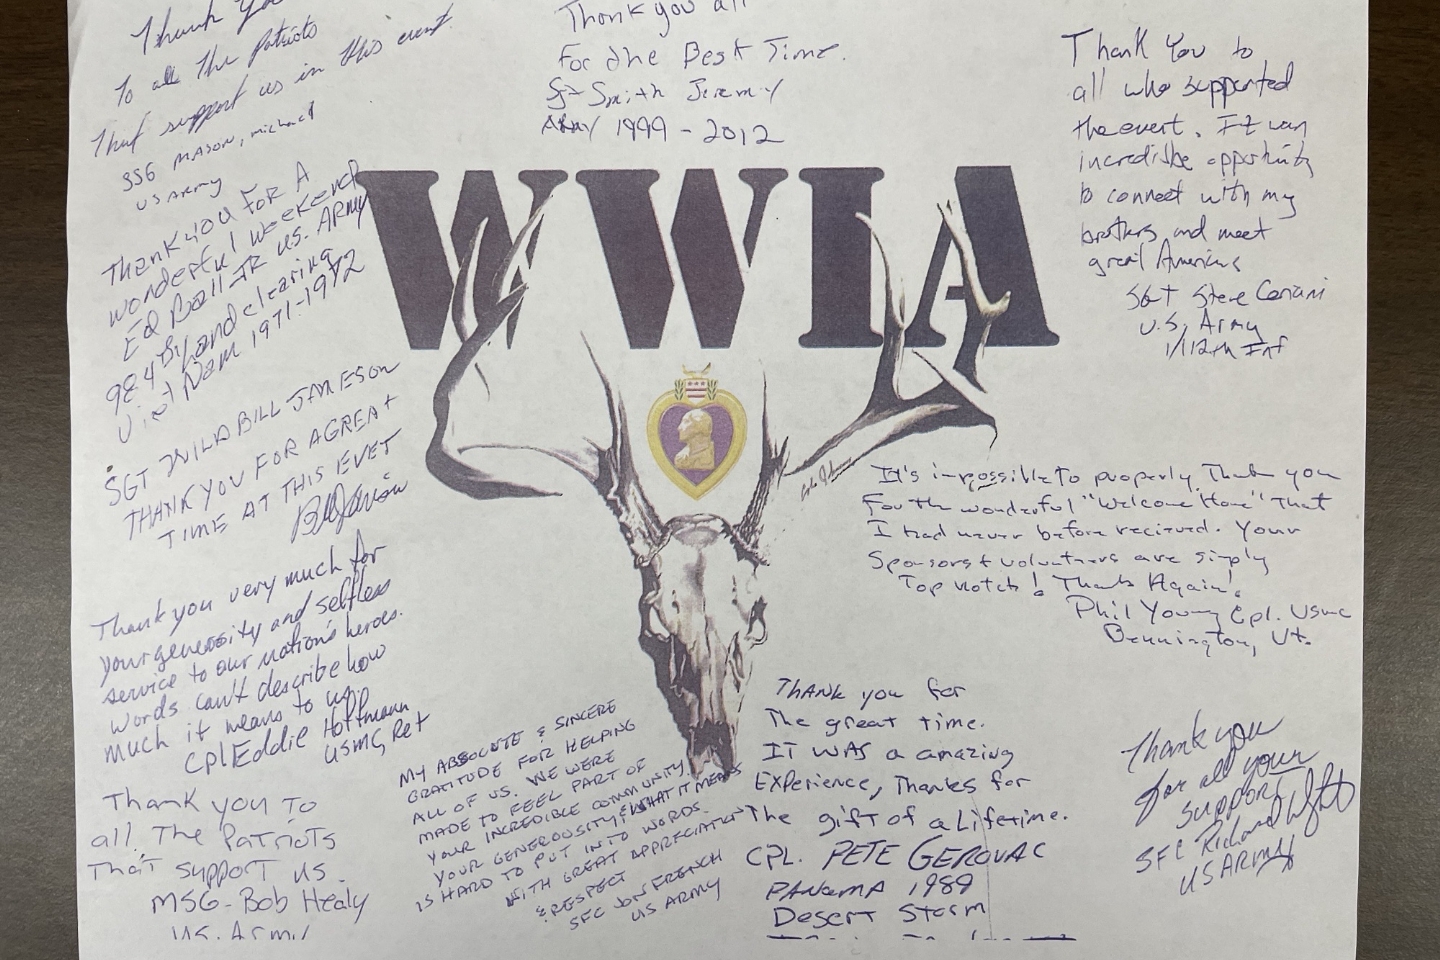 Thank You
To all The Patriots
That support us in this event.
SSG MASON, michael
US ARMY
Thank you all
For the Best Time.
Smith Jeremy
Army 1999 - 2012
Thank You to
all who supported
the event. It was
incredible opportunity
to connect with my
brothers and meet
great Americans
SGT Steve
U.S. Army
1/112th Inf
WWIA
THANK YOU FOR A
wonderful weekend
Ed Ball JR U.S. ARMY
984th Landclearing
Viet Nam 1971-1972
SGT WILD BILL JAMESON
THANK YOU FOR A GREAT
TIME AT THIS EVET
Bill Jameson
Thank you very much for
your generosity and selfless
service to our nation's heroes.
Words can't describe how
much it means to us.
Cpl Eddie Hoffmann
USMC Ret
Thank you To
all The Patriots
That support us.
MSG- Bob Healy
US. Army
MY ABSOLUTE & SINCERE
GRATITUDE FOR HELPING
ALL OF US. WE WERE
MADE TO FEEL PART OF
YOUR INCREDIBLE COMMUNITY
YOUR GENEROUSITY & WHAT IT MEANS
IS HARD TO PUT INTO WORDS.
WITH GREAT APPRECIATION
& RESPECT
SFC JON FRENCH
US ARMY
It's impossible to properly Thank you
For the wonderful "Welcome Home" That
I had never before recieved. Your
Sponsors & volunteers are simply
Top notch! Thanks Again!
Phil Young Cpl. USMC
Bennington, Vt.
THANK you for
The great time.
IT WAS a amazing
EXPerience, Thanks for
The gift of a Lifetime.
CPL. PETE GEROVAC
PANAMA 1989
Desert Storm
Thank you
for all your
support
SFC Richard
US ARMY